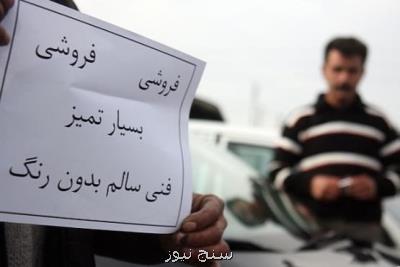 فروشی فروشی
بسیار تمیز
فنی سالم بدون رنگ
سنج نیوز